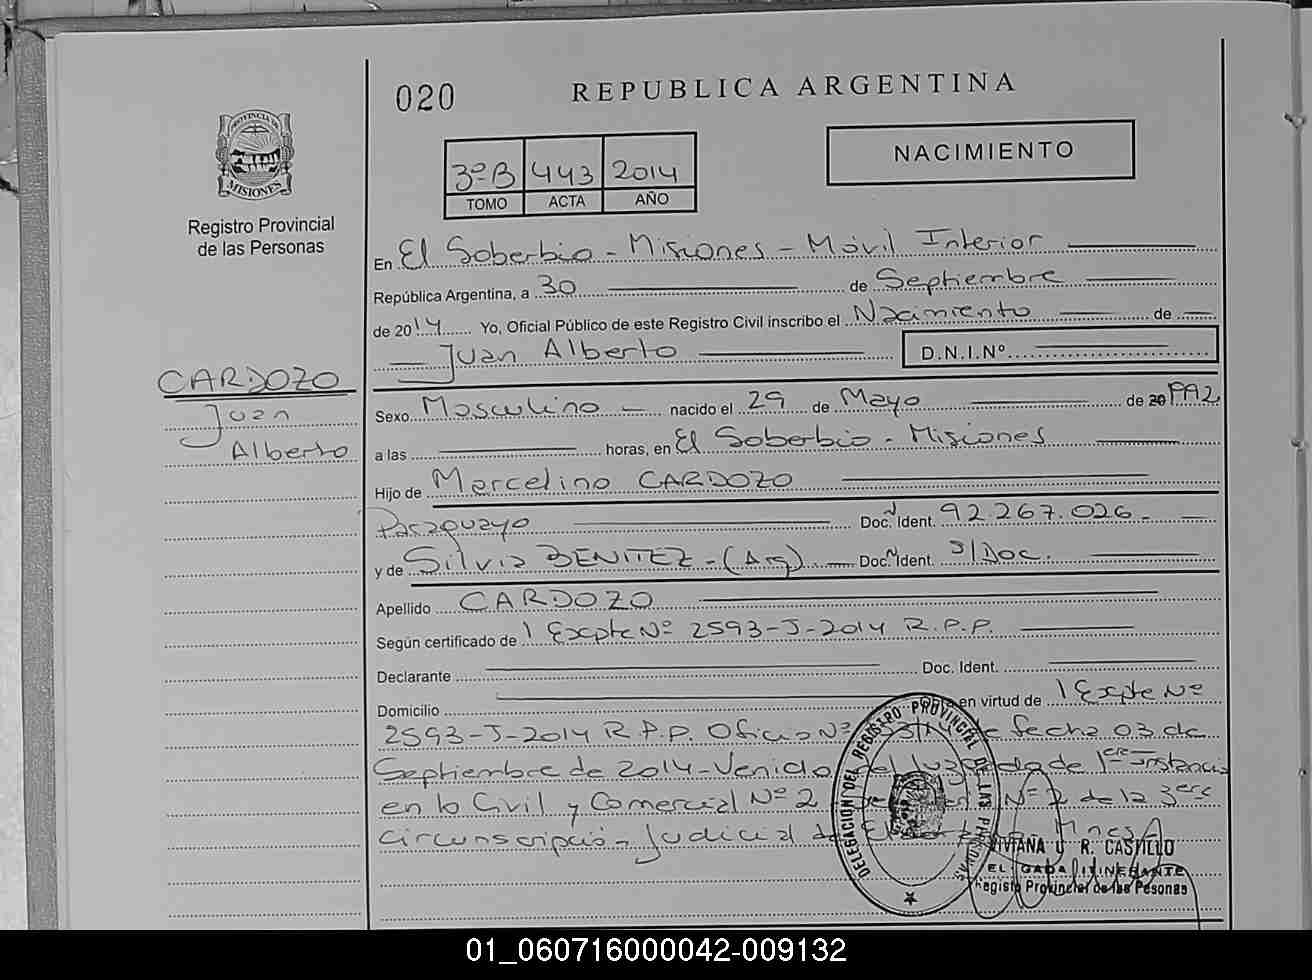 020
REPUBLICA ARGENTINA
PROVINCIA DE
MISIONES
Registro Provincial
de las Personas
3º B 443 2014
TOMO ACTA AÑO
NACIMIENTO
En El Soberbio - Misiones - Móvil Interior
República Argentina, a 30 de Septiembre
de 2014 Yo, Oficial Público de este Registro Civil inscribo el Nacimiento de
Juan Alberto D.N.I.Nº
CARDOZO
Juan
Alberto
Sexo Masculino nacido el 29 de Mayo de 20 1992
a las horas, en El Soberbio - Misiones
Hijo de Marcelino CARDOZO
Paraguayo Doc. Ident. 92.267.026.
y de Silvia BENITEZ - (Arg) Doc. Ident. S/Doc.
Apellido CARDOZO
Según certificado de 1 Expte Nº 2593-J-2014 R.P.P.
Declarante Doc. Ident.
Domicilio en virtud de 1 Expte Nº
2593-J-2014 R.P.P. Oficio Nº de fecha 03 de
Septiembre de 2014 - Venido del Juzgado de 1era Instancia
en lo Civil y Comercial Nº 2 Nº 2 de la 3era
Circunscripción Judicial de Mnes
DELEGACION DEL REGISTRO PROVINCIAL DE LAS PERSONAS
R. CASTILLO
ITINERANTE
Registro Provincial de las Pesonas
01_060716000042-009132